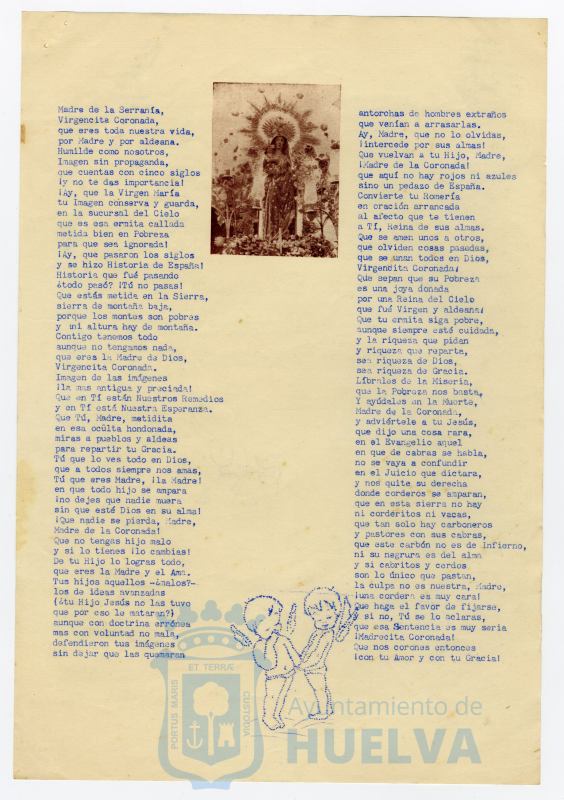 Madre de la Serranía,
Virgencita Coronada,
que eres toda nuestra vida,
por Madre y por aldeana.
Humilde como nosotros.
Imagen sin propaganda,
que cuentas con cinco siglos
¡y no te das importancia!
¡Ay, que la Virgen María
tu Imagen conserva y guarda,
en la sucursal del Cielo
que es esa ermita callada
metida bien en Pobreza
para que sea ignorada!
¡Ay, que pasaron los siglos
y se hizo Historia de España!
Historia que fué pasando
¿todo pasó? ¡Tú no pasas!
Que estás metida en la Sierra,
sierra de montaña baja,
porque los montes son pobres
y ni altura hay de montaña.
Contigo tenemos todo
aunque no tengamos nada,
que eres la Madre de Dios,
Virgencita Coronada.
Imagen de las imágenes
¡la mas antigua y preciada!
Que en Tí están Nuestros Remedios
y en Tí está Nuestra Esperanza.
Que Tú, Madre, metidita
en esa oculta hondonada,
miras a pueblos y aldeas
para repartir tu Gracia.
Tú que lo ves todo en Dios,
que a todos siempre nos amas,
Tú que eres Madre, ¡la Madre!
en que todo hijo se ampara
¡no dejes que nadie muera
sin que esté Dios en su alma!
¡Que nadie se pierda, Madre,
Madre de la Coronada!
Que no tengas hijo malo
y si lo tienes ¡lo cambias!
De tu Hijo lo logras todo,
que eres la Madre y el Ama.
Tus hijos aquellos -¿malos?-
los de ideas avanzadas
(¿tu Hijo Jesús no las tuvo
que por eso le mataran?)
aunque con doctrina errónea
mas con voluntad no mala,
defendieron tus imágenes
sin dejar que las quemaran
antorchas de hombres extraños
que venían a arrasarlas.
Ay, Madre, que no lo olvidas,
¡intercede por sus almas!
Que vuelvan a tu Hijo, Madre,
¡Madre de la Coronada!
que aquí no hay rojos ni azules
sino un pedazo de España.
Convierte tu Romería
en oración arrancada
al afecto que te tienen
a Tí, Reina de sus almas.
Que se amen unos a otros,
que olviden cosas pasadas,
que se unan todos en Dios,
Virgencita Coronada!
Que sepan que su Pobreza
es una joya donada
por una Reina del Cielo
que fué Virgen y aldeana!
Que tu ermita siga pobre,
aunque siempre esté cuidada,
y la riqueza que pidan
y riqueza que reparta,
sea riqueza de Dios,
sea riqueza de Gracia.
Líbrales de la Miseria,
que la Pobreza nos basta.
Y ayúdales en la Muerte,
Madre de la Coronada,
y adviértele a tu Jesús,
que dijo una cosa rara,
en el Evangelio aquel
en que de cabras se habla,
no se vaya a confundir
en el Juicio que dictara,
y nos quite su derecha
donde corderos se amparan,
que en esta sierra no hay
ni corderitos ni vacas,
que tan solo hay carboneros
y pastores con sus cabras,
que este carbón no es de infierno,
ni su negrura es del alma
y si cabritos y cerdos
son lo único que pastan,
la culpa no es nuestra, Madre,
¡una cordera es muy cara!
Que haga el favor de fijarse,
y si no, Tú se lo aclaras,
que esa Sentencia es muy seria
¡Madrecita Coronada!
Que nos corones entonces
¡con tu Amor y con tu Gracia!
ET TERRÆ
PORTUS MARIS
CUSTODIA
Ayuntamiento de
HUELVA